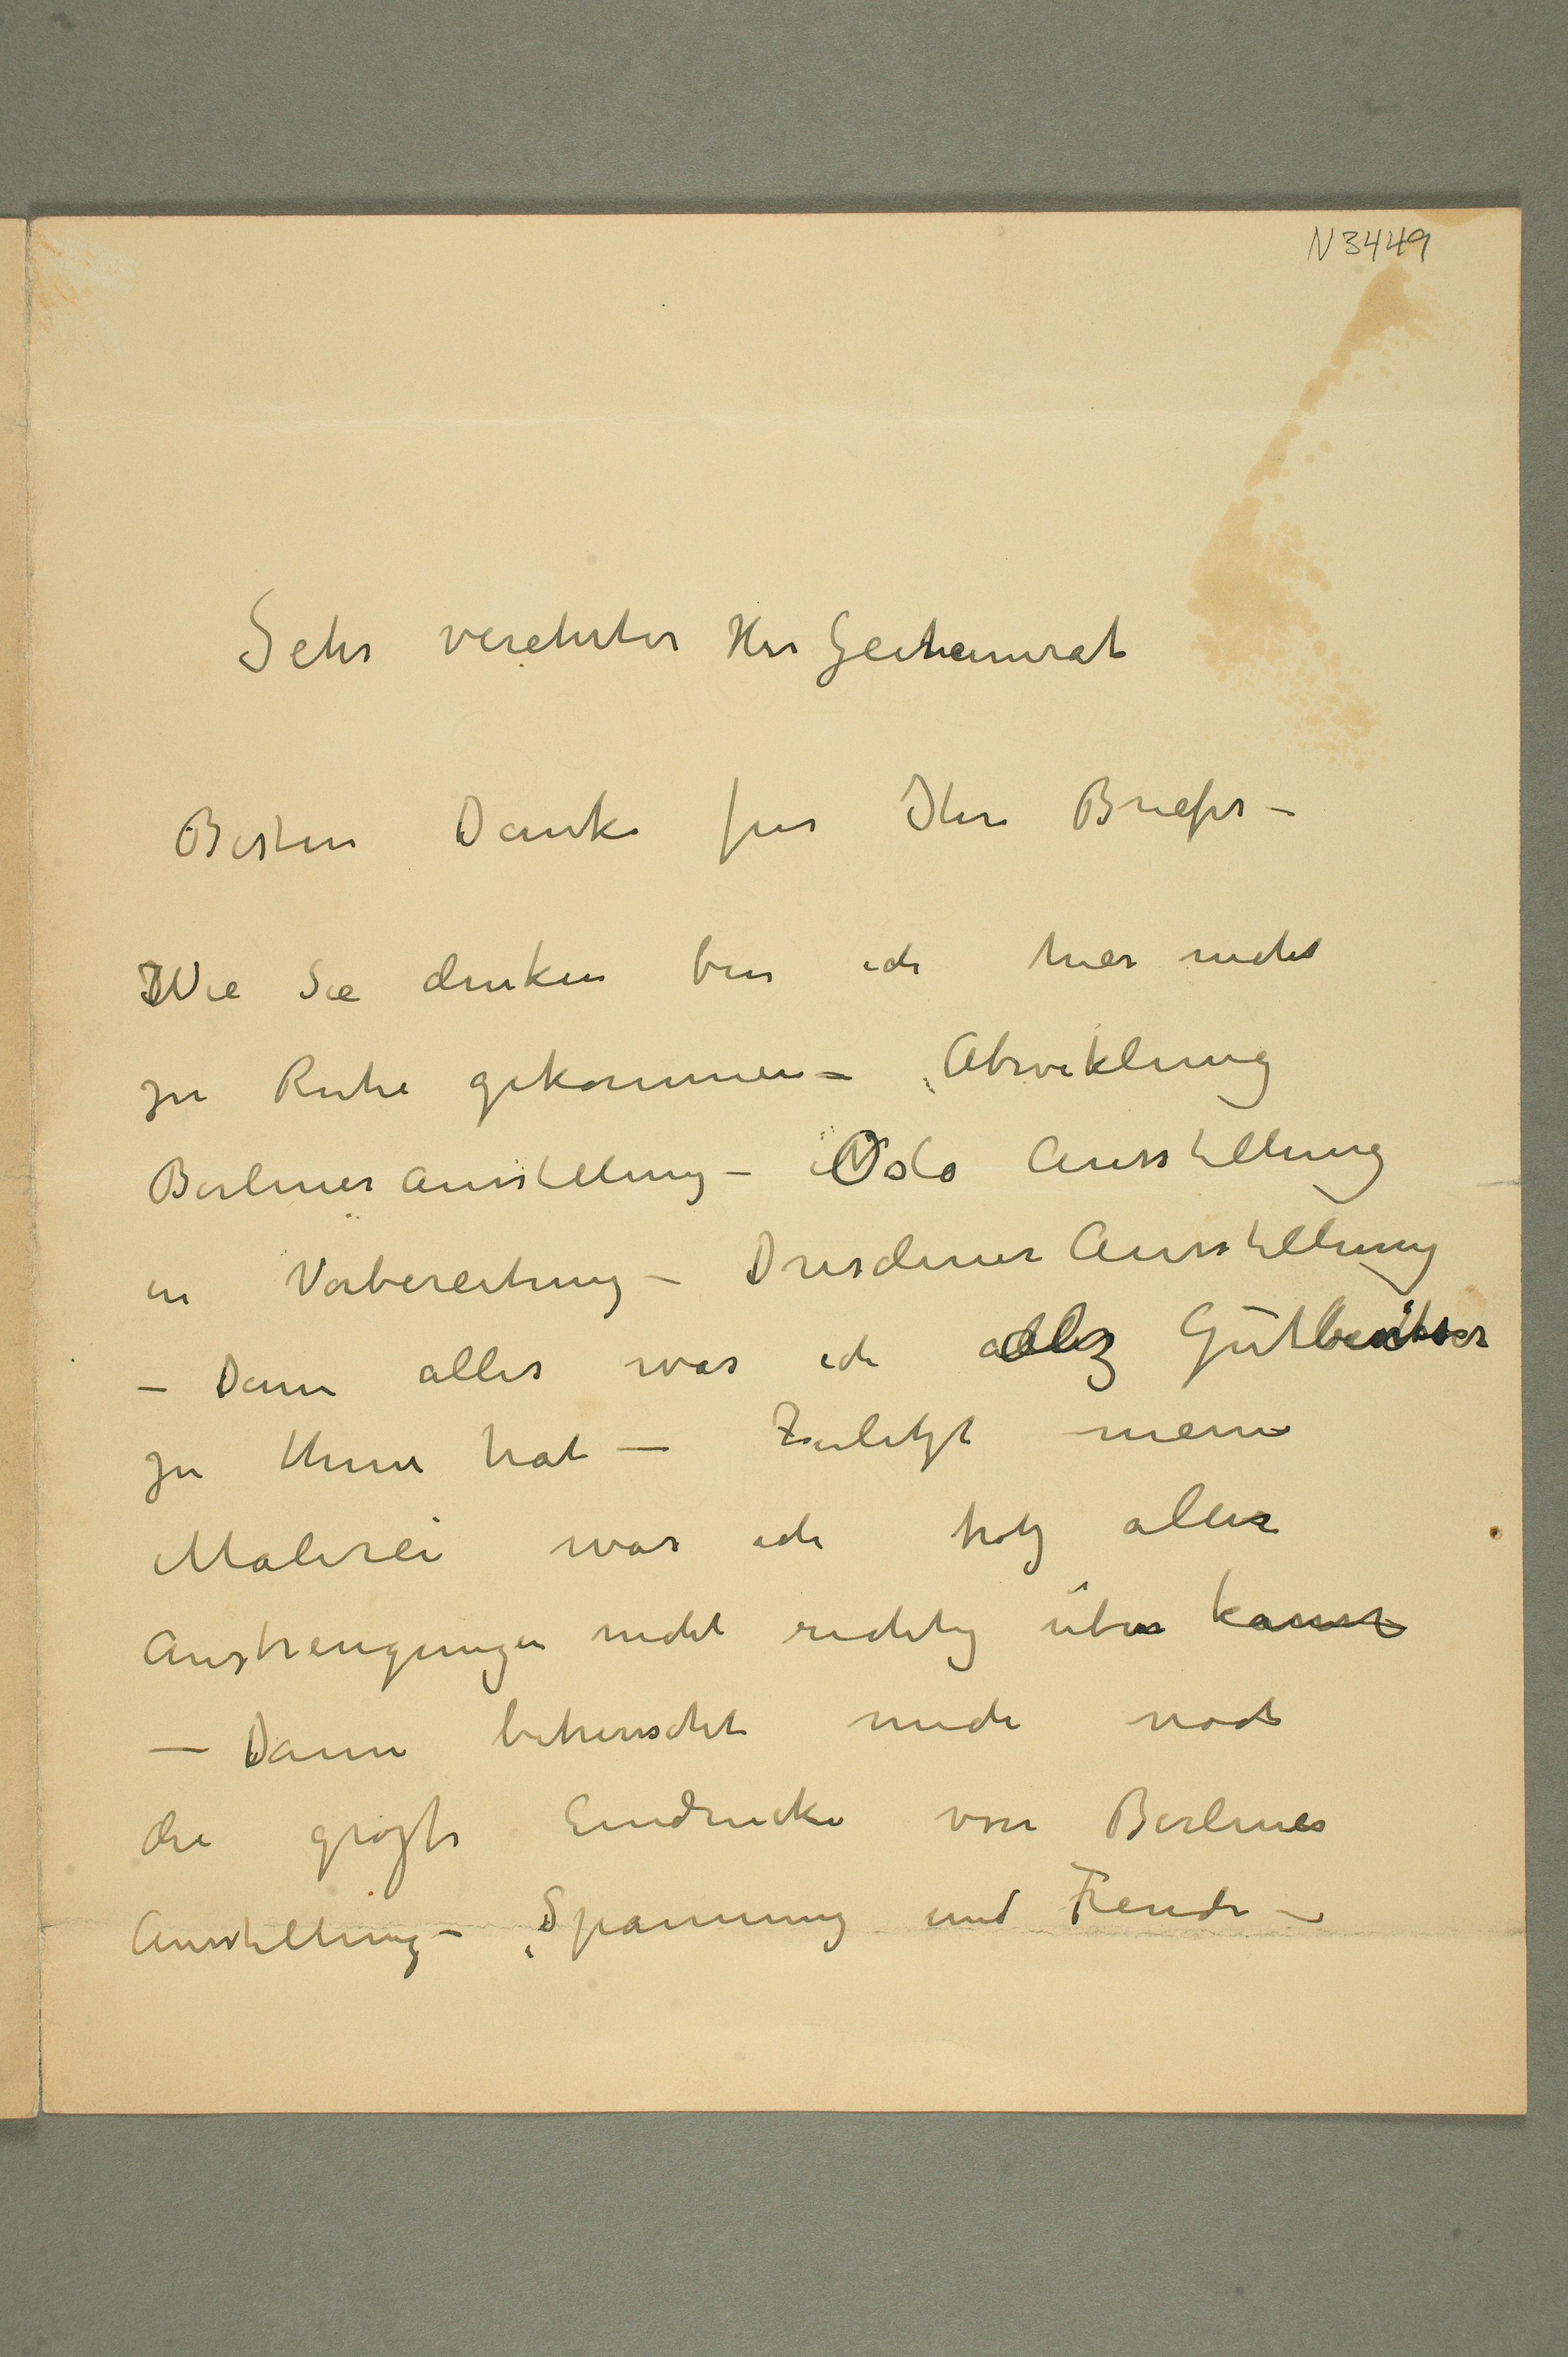 N 3449
Sehr verehrter Herr Geiheimrat
Besten Danke für Ihre Briefer –
Wie Sie denken bin ich hier nicht
zu Ruhe gekommen – Abwiklung
Berliner Ausstellung – Oslo Ausstellung
in Vorbereitung – Dresdener Ausstellung
– Dann alles was ich als Gutbesitser
zu thun hat – Zuletzt meine
Malerei was ich trotz aller
Anstrengungen nicht richtig über kann
– Dann beherscht mich noch
die grozte Eindrucke von Berliner
Ausstellung – Spannung und Freude –